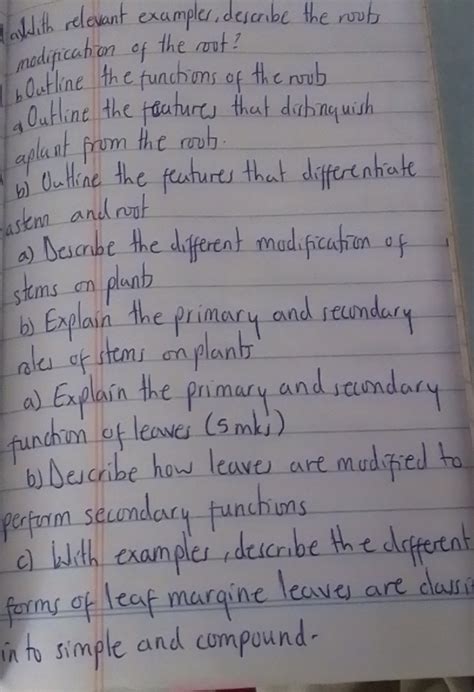 a) With relevant examples, describe the roots
modification of the root?
b Outline the functions of the roots
a Outline the features that distinquish
aplant from the roots.
b) Outline the features that differentiate
astem and root
a) Describe the different modification of
stems on plants
b) Explain the primary and secondary
roles of stems on plants
a) Explain the primary and secondary
function of leaves (5mks)
b) Describe how leaves are modified to
perform secondary functions
c) With examples, describe the different
forms of leaf margine leaves are classi
in to simple and compound.